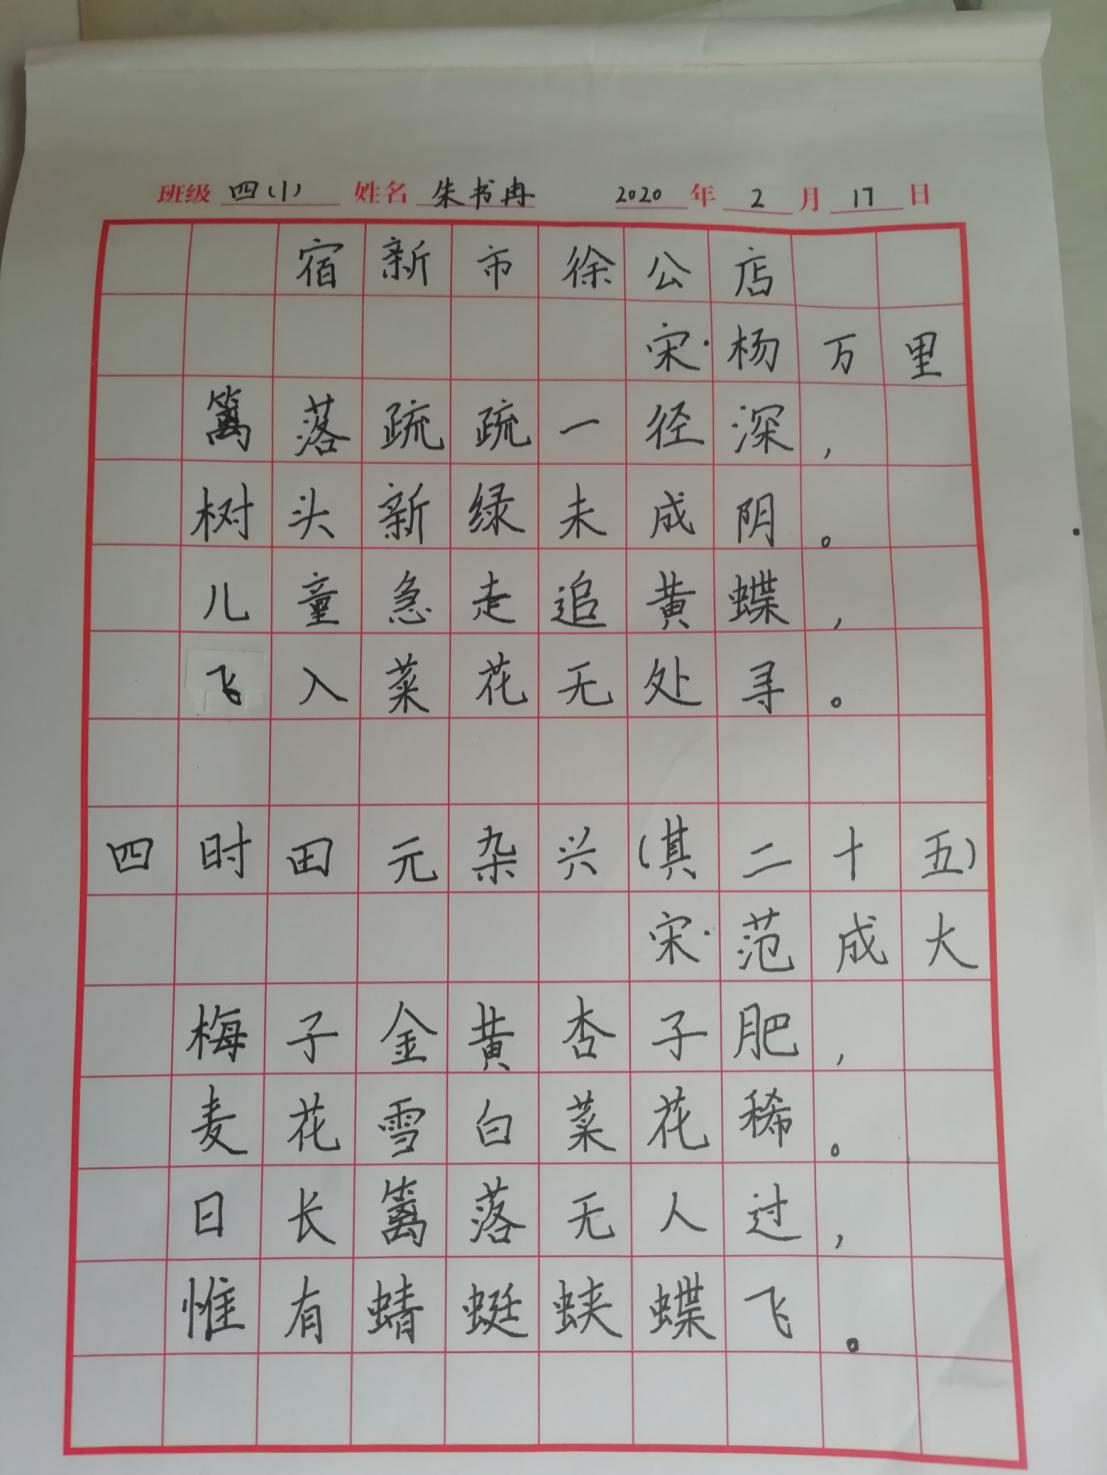 班级 四(1) 姓名 朱书冉 2020 年 2 月 17 日
宿新市徐公店
宋·杨万里
篱落疏疏一径深，
树头新绿未成阴。
儿童急走追黄蝶，
飞入菜花无处寻。
四时田元杂兴(其二十五)
宋·范成大
梅子金黄杏子肥，
麦花雪白菜花稀。
日长篱落无人过，
惟有蜻蜓蛱蝶飞。